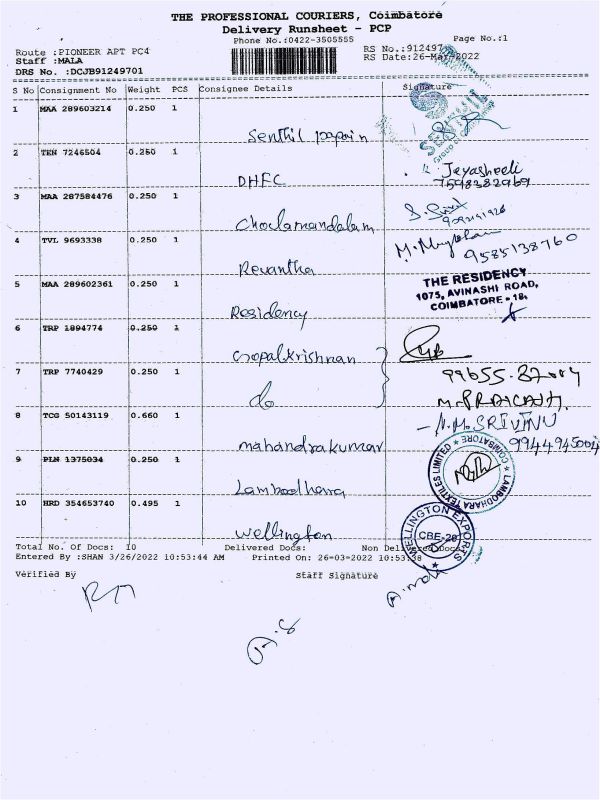 THE PROFESSIONAL COURIERS, Coimbatore
Delivery Runsheet - PCP
Phone No.:0422-3505555 Page No.:1
Route :PIONEER APT PC4 RS No.:912497
Staff :MALA RS Date:26-Mar-2022
DRS No. :DCJB91249701
S No Consignment No Weight PCS Consignee Details Signature
1 MAA 289603214 0.250 1
Senthil papain
2 TEN 7246504 0.250 1
DHFC Jeyasheeli
7598382969
3 MAA 287584476 0.250 1
Cholamandalam
4 TVL 9693338 0.250 1
Revantha 9585138760
5 MAA 289602361 0.250 1
Residency
THE RESIDENCY
1075, AVINASHI ROAD,
COIMBATORE - 18.
6 TRP 1894774 0.250 1
Gopalkrishnan
7 TRP 7740429 0.250 1
do
M. PRAKASH.
8 TCG 50143119 0.660 1
mahandrakumar
N.M. SRIVINU
9944945004
9 PLN 1375034 0.250 1
Lamboodhara
LAMBODHARA TEXTILES LIMITED
COIMBATORE
10 HRD 354653740 0.495 1
Wellington
WELLINGTON EXPORTS
CBE-29
Total No. Of Docs: 10 Delivered Docs: Non Delivered Docs:
Entered By :SHAN 3/26/2022 10:53:44 AM Printed On: 26-03-2022 10:53:38
Verified By Staff Signature